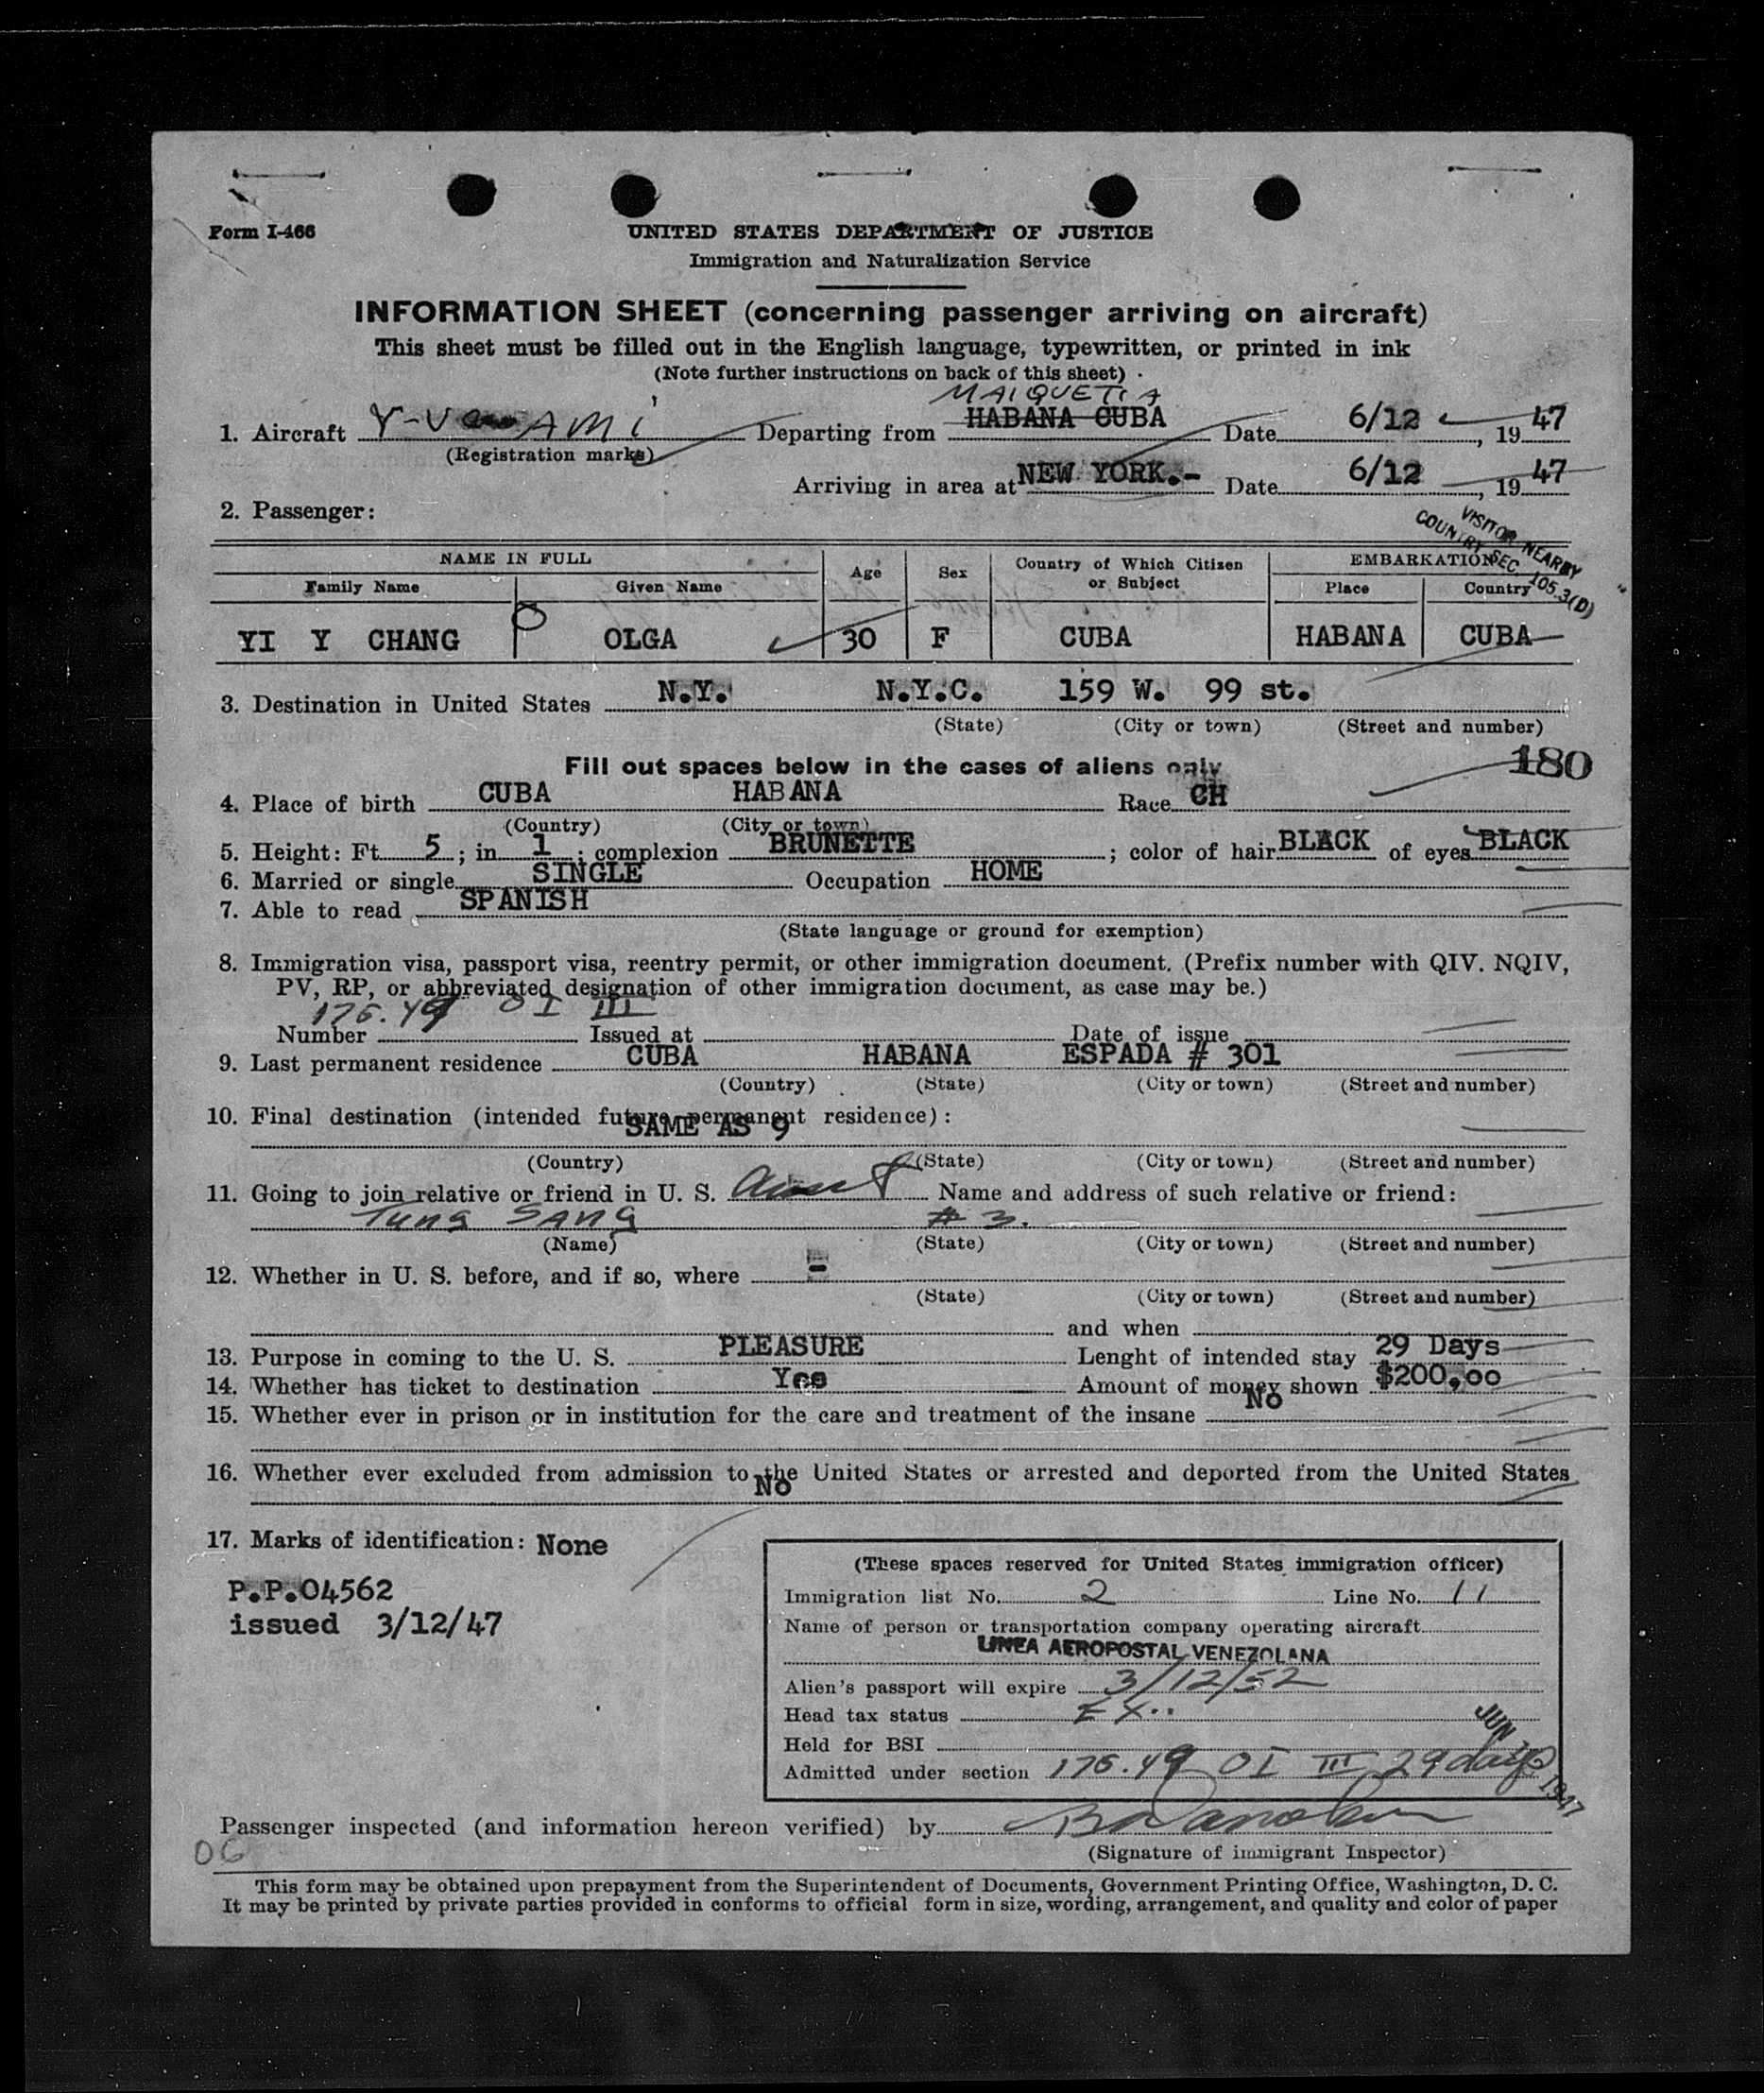 Form I-466
UNITED STATES DEPARTMENT OF JUSTICE
Immigration and Naturalization Service
INFORMATION SHEET (concerning passenger arriving on aircraft)
This sheet must be filled out in the English language, typewritten, or printed in ink
(Note further instructions on back of this sheet)
MAIQUETIA
1. Aircraft Y-V AMI Departing from HABANA CUBA Date 6/12, 1947
(Registration marks)
Arriving in area at NEW YORK.- Date 6/12, 1947
2. Passenger:
VISITOR NEARBY
COUNTRY SEC. 105.3(D)
NAME IN FULL Age Sex Country of Which Citizen or Subject EMBARKATION
Family Name Given Name Place Country
YI Y CHANG OLGA 30 F CUBA HABANA CUBA
3. Destination in United States N.Y. N.Y.C. 159 W. 99 st.
(State) (City or town) (Street and number)
Fill out spaces below in the cases of aliens only 180
4. Place of birth CUBA HABANA Race CH
(Country) (City or town)
5. Height: Ft. 5; in. 1; complexion BRUNETTE; color of hair BLACK of eyes BLACK
6. Married or single SINGLE Occupation HOME
7. Able to read SPANISH
(State language or ground for exemption)
8. Immigration visa, passport visa, reentry permit, or other immigration document. (Prefix number with QIV. NQIV,
PV, RP, or abbreviated designation of other immigration document, as case may be.)
176.49 OI III
Number Issued at Date of issue
9. Last permanent residence CUBA HABANA ESPADA # 301
(Country) (State) (City or town) (Street and number)
10. Final destination (intended future permanent residence):
SAME AS 9
(Country) (State) (City or town) (Street and number)
11. Going to join relative or friend in U. S. Aunt Name and address of such relative or friend:
Tung SANG # 3.
(Name) (State) (City or town) (Street and number)
12. Whether in U. S. before, and if so, where -
(State) (City or town) (Street and number)
and when
13. Purpose in coming to the U. S. PLEASURE Lenght of intended stay 29 Days
14. Whether has ticket to destination Yes Amount of money shown $200,oo
15. Whether ever in prison or in institution for the care and treatment of the insane No
16. Whether ever excluded from admission to the United States or arrested and deported from the United States
No
17. Marks of identification: None
P.P.04562
issued 3/12/47
(These spaces reserved for United States immigration officer)
Immigration list No. 2 Line No. 11
Name of person or transportation company operating aircraft
LINEA AEROPOSTAL VENEZOLANA
Alien's passport will expire 3/12/52
Head tax status EX..
Held for BSI
Admitted under section 176.49 OI III 29 days
JUN 1947
Passenger inspected (and information hereon verified) by
(Signature of immigrant Inspector)
06
This form may be obtained upon prepayment from the Superintendent of Documents, Government Printing Office, Washington, D. C.
It may be printed by private parties provided in conforms to official form in size, wording, arrangement, and quality and color of paper